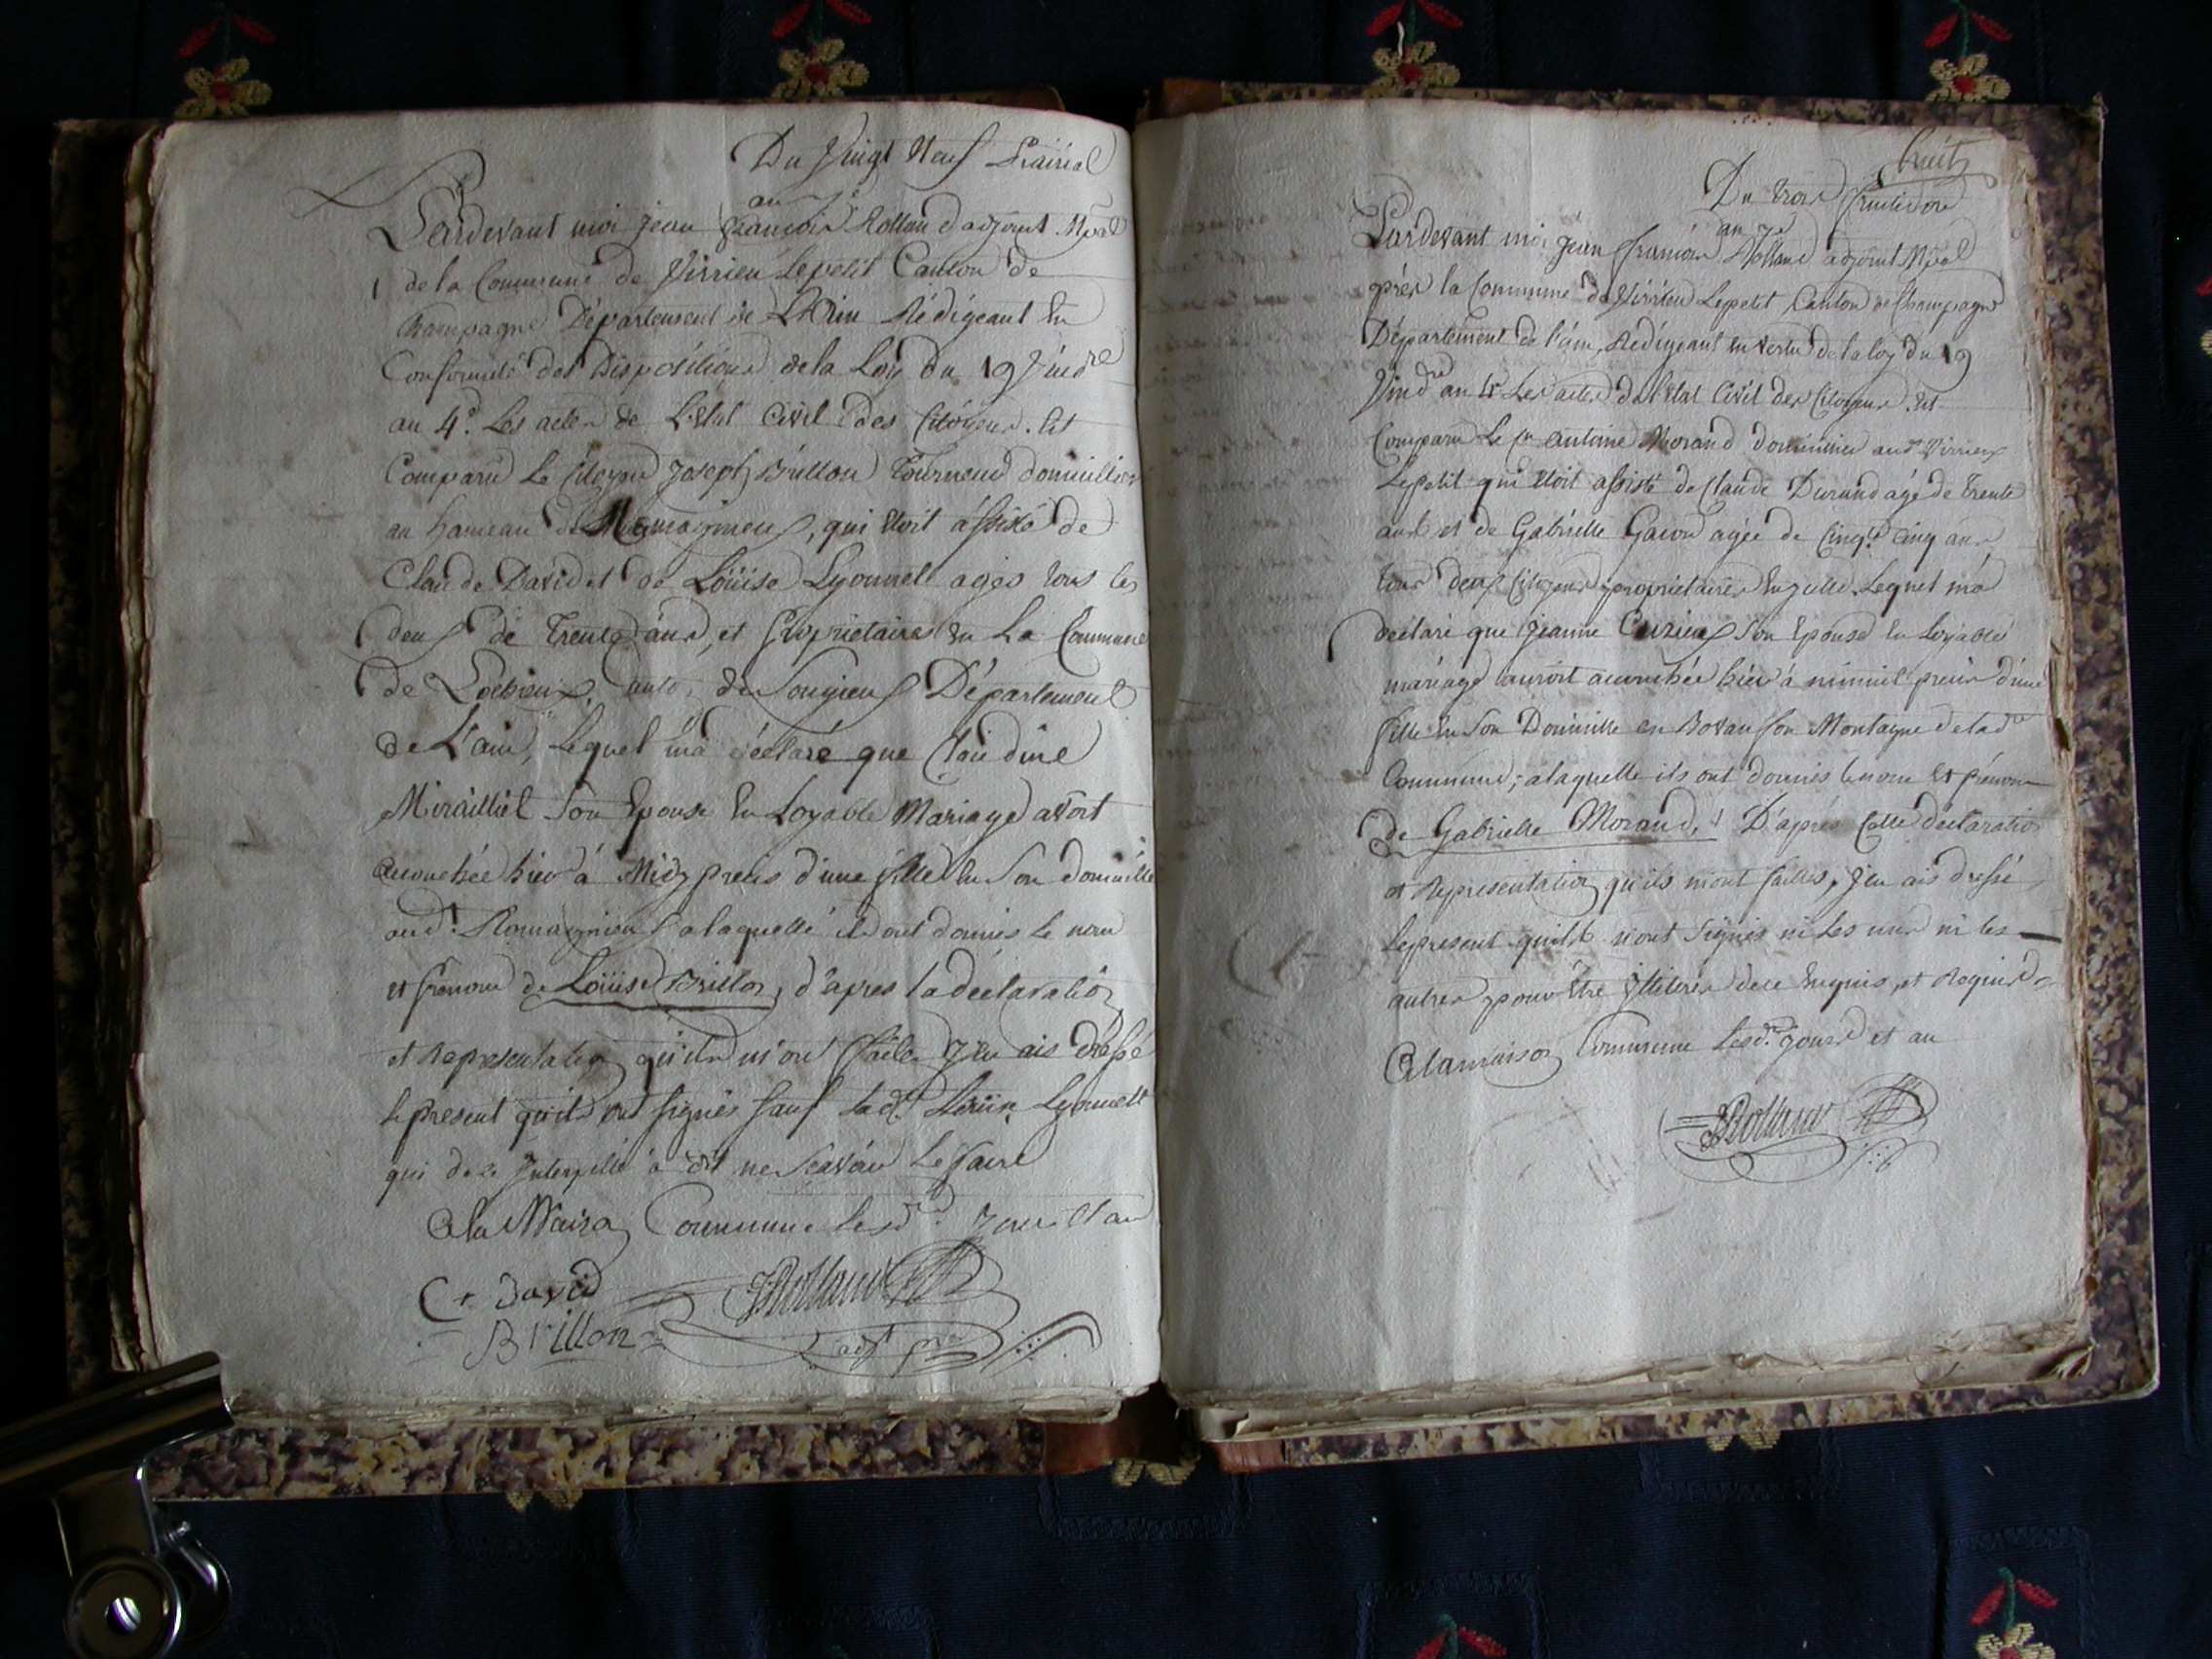 Du Vingt Neuf Prairial
an 7e
Pardevant moi jean françois Rolland adjoint Mpal
de la Commune de Virrieu Lepetit Canton de
Champagne Département de L'Ain Rédigeant En
Conformité des Dispositions de la Loy du 19 Vindre
an 4e Les actes de L'Etat Civil des Citoyens. Est
Comparu Le Citoyen Joseph Brillon Tourneur domicillier
au hameau de Romagnieux, qui Etoit assisté de
Claude David et de Loüise Lyonnet agés tous les
deux de Trente ans, et Propriétaires En La Commune
de Songieux Département
de L'ain, Lequel m'a déclaré que Claudine
Mirailliet Son Epouse En Loyable Mariage avoit
accouchée hier à Midy precis d'une fille En Son domicille
aud. Romagnieux a laquelle ils ont donnés le nom
et prénom de Loüise Brillon, d'apres la déclaration
et Representation qu'ils m'ont faites J'en ais dréssé
le present qu'ils ont signés sauf lad. Lyonnet
qui de ce Interpellé a dit ne Scavoir Le faire
A la Maison Commune Lesd. Jour et an
Ce David
Brillon
JRolland
adjt
huit
Du trois fructidor
an 7e
Pardevant moi Jean françois Rolland adjoint Mpal
près la Commune de Virrieu Lepetit Canton de Champagne
Département de l'ain, Rédigeant en vertu de la loy du 19
Vindre an 4e Les actes de l'état Civil des Citoyens. Est
Comparu Le Cn antoine Morand domicilier aud Virrieux
Lepetit qui Etoit assisté de Claude Durand agé de trente
ans et de Gabrielle Gacon agée de Cinqte Cinq ans
tous deux Citoyens propriétaires En Lequel m'a
déclaré que Jeanne Cuzieux Son Epouse En Loyable
mariage auroit accouchée hier à minuit precis d'une
fille En Son Domicille en Montagne de lad
Commune; a laquelle ils ont donnés le nom Et prénom
de Gabrielle Morand, D'après Cette déclaration
et Representation qu'ils m'ont faites, J'en ais dressé
Le present qu'ils n'ont Signés ni Les uns ni les
autres pour être Illiterés de ce Enquis, et Requis
A la maison Commune Lesd. jour et an
JRolland